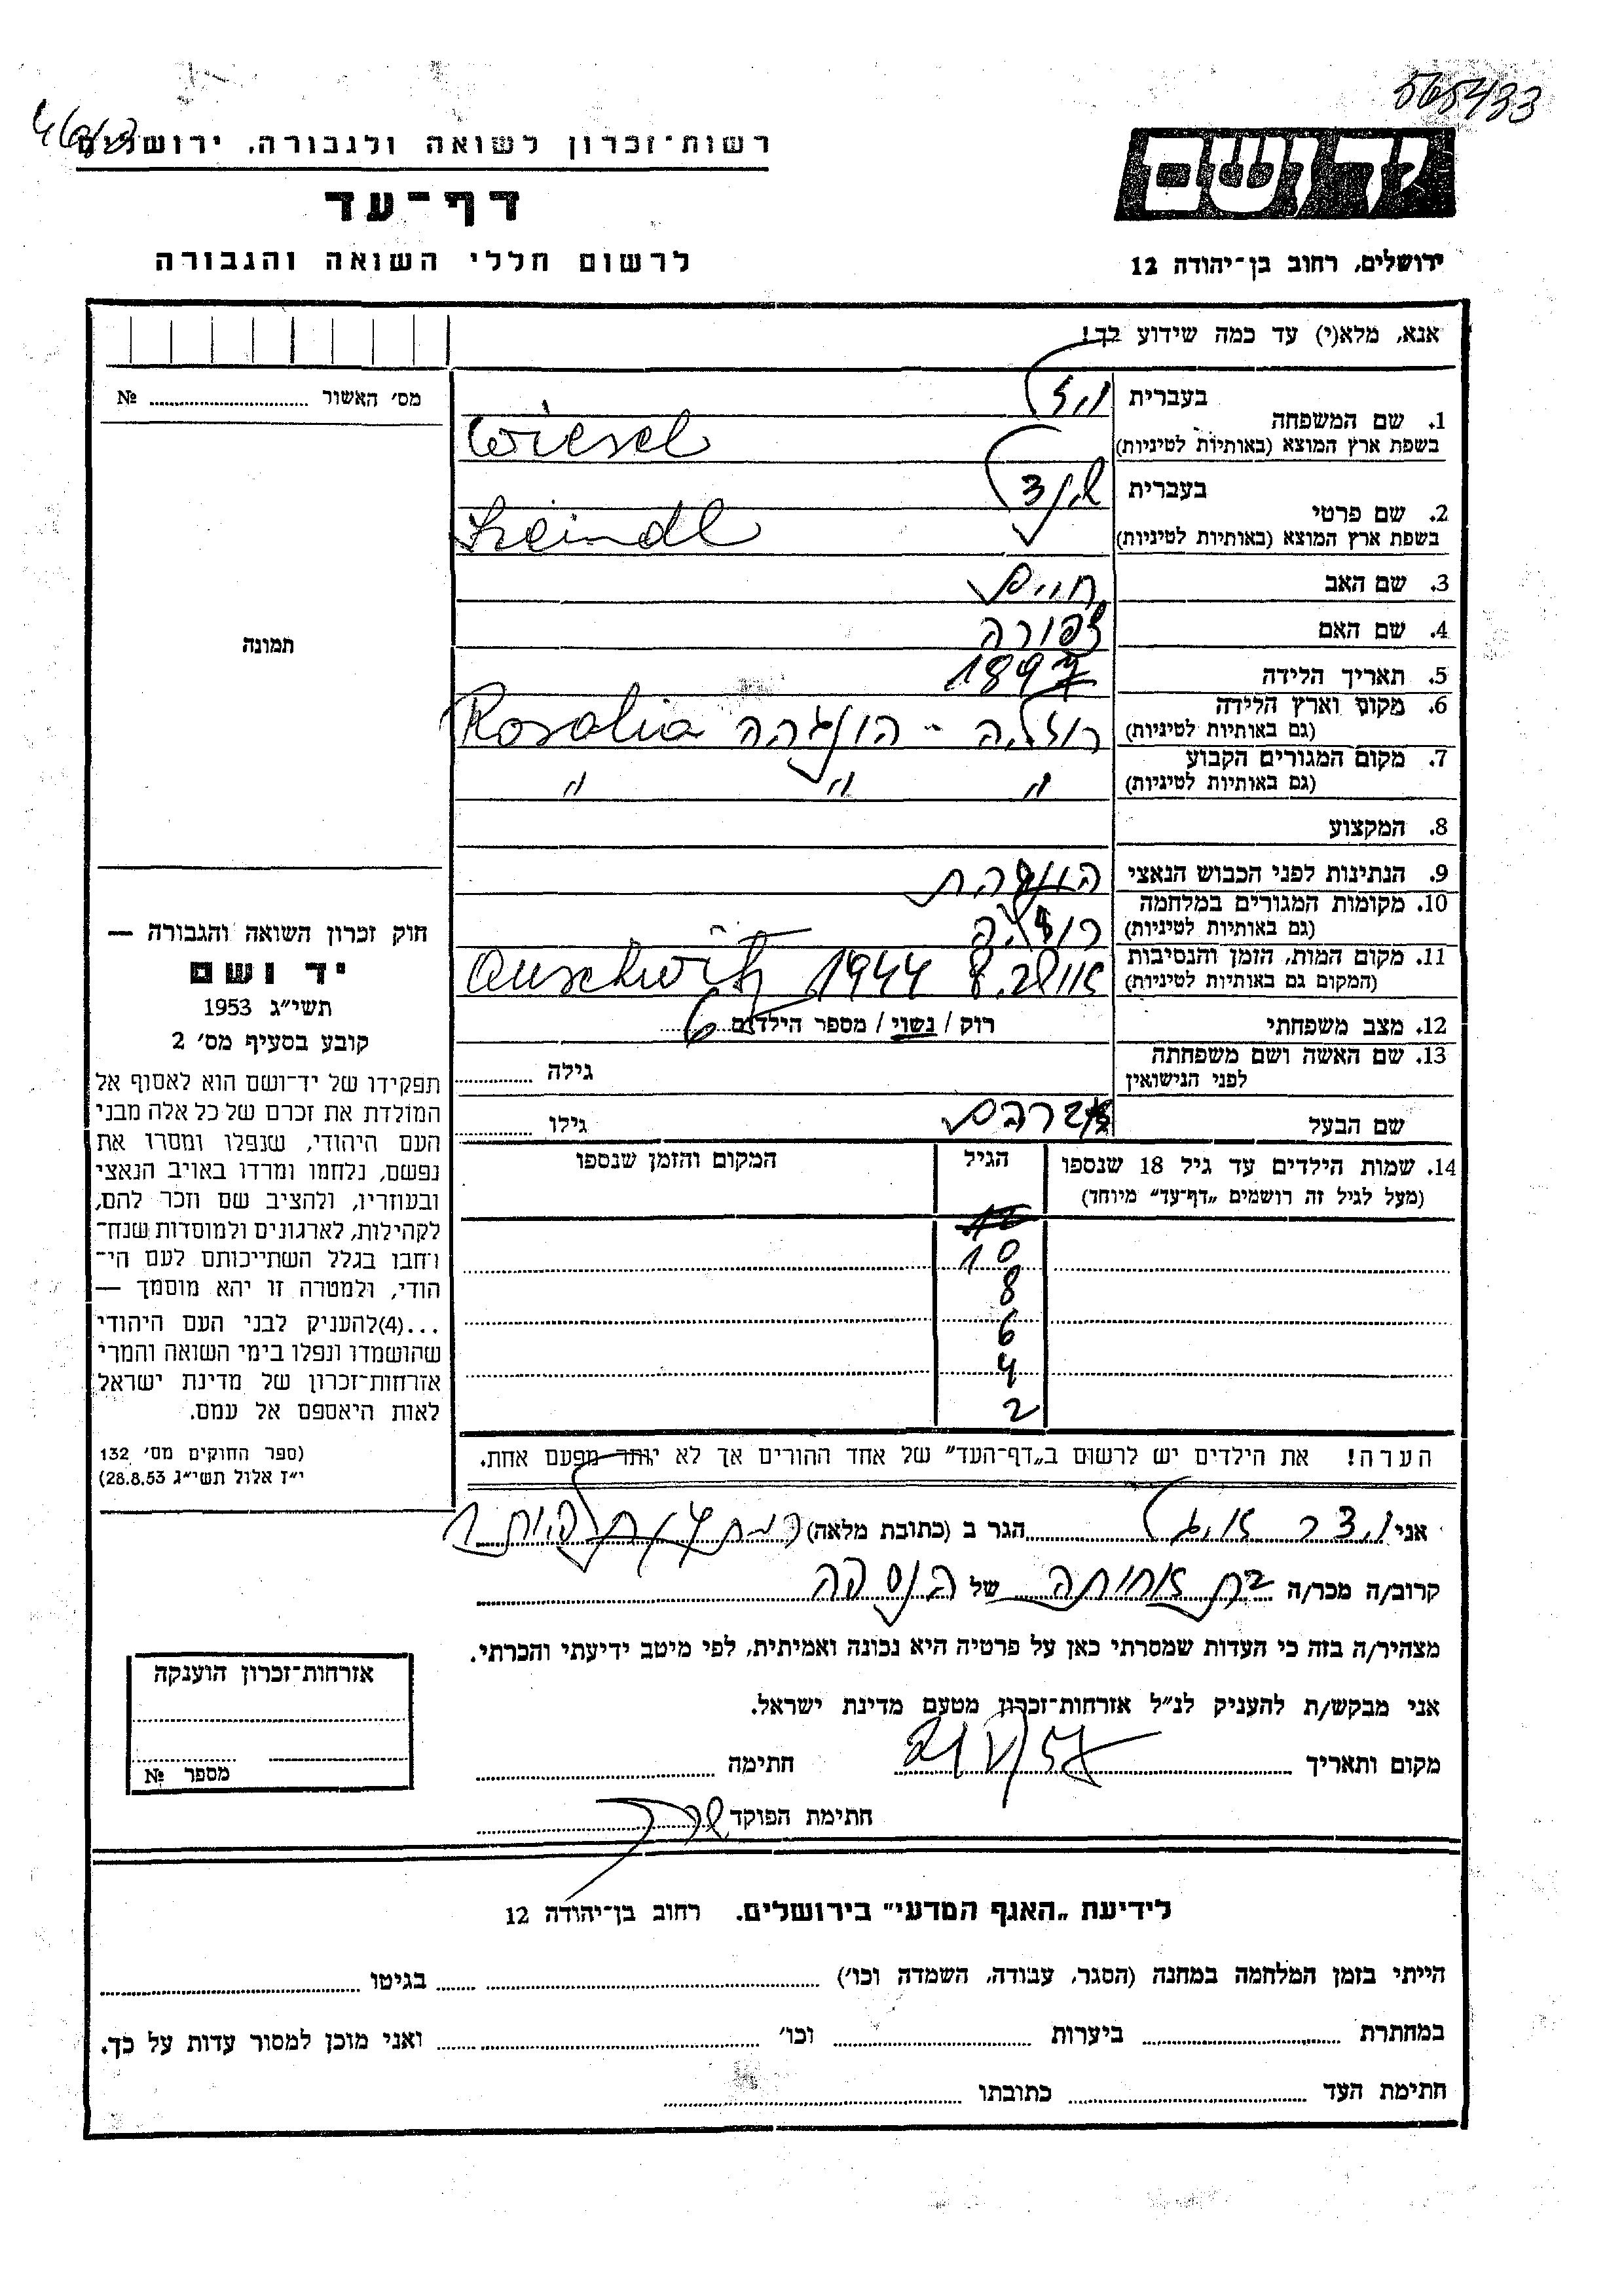 565433
רשות־זכרון לשואה ולגבורה, ירושלים
יד ושם
דף־עד
לרשום חללי השואה והגבורה
ירושלים, רחוב בן־יהודה 12
אנא, מלא(י) עד כמה שידוע לך!
מס' האשור № 
1. שם המשפחה
בעברית ויזל
בשפת ארץ המוצא (באותיות לטיניות) Wiesel
2. שם פרטי
בעברית שינדל
בשפת ארץ המוצא (באותיות לטיניות)
3. שם האב חיים
4. שם האם צפורה
5. תאריך הלידה 1897
6. מקום וארץ הלידה
(גם באותיות לטיניות) רוזליה - הונגריה Rosalia
7. מקום המגורים הקבוע
(גם באותיות לטיניות) " " "
8. המקצוע
9. הנתינות לפני הכבוש הנאצי הונגרית
10. מקומות המגורים במלחמה
(גם באותיות לטיניות) רוזליה
11. מקום המות, הזמן והנסיבות
(המקום גם באותיות לטיניות) אושביץ 1944 Auschwitz
12. מצב משפחתי רוק / נשוי / מספר הילדים 6
13. שם האשה ושם משפחתה
לפני הנישואין
גילה
שם הבעל אברהם
גילו
14. שמות הילדים עד גיל 18 שנספו
(מעל לגיל זה רושמים "דף־עד" מיוחד)
הגיל
המקום והזמן שנספו
10
8
6
4
2
הערה! את הילדים יש לרשום ב"דף־העד" של אחד ההורים אך לא יותר מפעם אחת.
תמונה
חוק זכרון השואה והגבורה —
יד ושם
תשי"ג 1953
קובע בסעיף מס' 2
תפקידו של יד־ושם הוא לאסוף אל
המולדת את זכרם של כל אלה מבני
העם היהודי, שנפלו ומסרו את
נפשם, נלחמו ומרדו באויב הנאצי
ובעוזריו, ולהציב שם וזכר להם,
לקהילות, לארגונים ולמוסדות שנח־
רבו בגלל השתייכותם לעם הי־
הודי, ולמטרה זו יהא מוסמך —
...(4)להעניק לבני העם היהודי
שהושמדו ונפלו בימי השואה והמרי
אזרחות־זכרון של מדינת ישראל
לאות היאספם אל עמם.
(ספר החוקים מס' 132
י"ז אלול תשי"ג 28.8.53)
אני הגר ב (כתובת מלאה)
קרוב/ה מכר/ה בת אחותה של הנספה
מצהיר/ה בזה כי העדות שמסרתי כאן על פרטיה היא נכונה ואמיתית, לפי מיטב ידיעתי והכרתי.
אני מבקש/ת להעניק לנ"ל אזרחות־זכרון מטעם מדינת ישראל.
מקום ותאריך חתימה
חתימת הפוקד
אזרחות־זכרון הוענקה
מספר №
לידיעת "האגף המדעי" בירושלים. רחוב בן־יהודה 12
הייתי בזמן המלחמה במחנה (הסגר, עבודה, השמדה וכו') בגיטו
במחתרת ביערות וכו' ואני מוכן למסור עדות על כך.
חתימת העד כתובתו